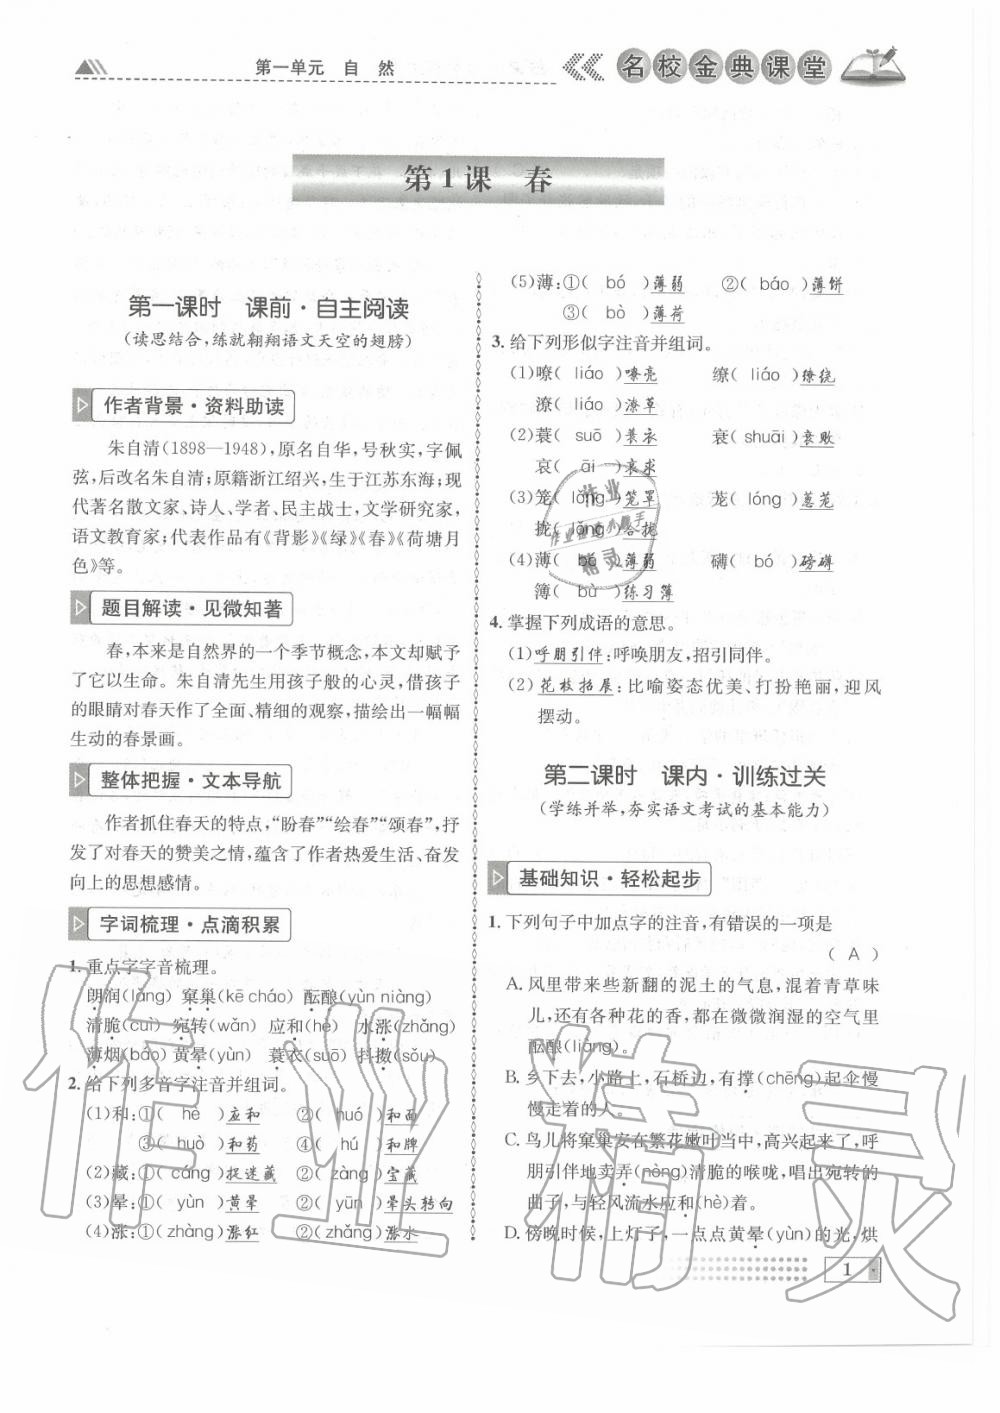 第一单元　自　然
名校金典课堂
第1课　春
第一课时　课前·自主阅读
(读思结合,练就翱翔语文天空的翅膀)
作者背景·资料助读
朱自清(1898—1948),原名自华,号秋实,字佩
弦,后改名朱自清;原籍浙江绍兴,生于江苏东海;现
代著名散文家、诗人、学者、民主战士,文学研究家,
语文教育家;代表作品有《背影》《绿》《春》《荷塘月
色》等。
题目解读·见微知著
春,本来是自然界的一个季节概念,本文却赋予
了它以生命。朱自清先生用孩子般的心灵,借孩子
的眼睛对春天作了全面、精细的观察,描绘出一幅幅
生动的春景画。
整体把握·文本导航
作者抓住春天的特点,“盼春”“绘春”“颂春”,抒
发了对春天的赞美之情,蕴含了作者热爱生活、奋发
向上的思想感情。
字词梳理·点滴积累
1. 重点字字音梳理。
朗润(lǎng) 窠巢(kē cháo) 酝酿(yùn niàng)
清脆(cuì) 宛转(wǎn) 应和(hè) 水涨(zhǎng)
薄烟(báo) 黄晕(yùn) 蓑衣(suō) 抖擞(sǒu)
2. 给下列多音字注音并组词。
(1)和:①( hé )应和 ②( huó )和面
③( huò )和药 ④( hú )和牌
(2)藏:①( cáng )捉迷藏 ②( zàng )宝藏
(3)晕:①( yùn )黄晕 ②( yūn )晕头转向
(4)涨:①( zhàng )涨红 ②( zhǎng )涨水
(5)薄:①( bó )薄弱 ②( báo )薄饼
③( bò )薄荷
3. 给下列形似字注音并组词。
(1)嘹( liáo )嘹亮 缭( liáo )缭绕
潦( liáo )潦草
(2)蓑( suō )蓑衣 衰( shuāi )衰败
哀( āi )哀求
(3)笼( lǒng )笼罩 茏( lóng )葱茏
拢( lǒng )合拢
(4)薄( bó )薄弱 礴( bó )磅礴
簿( bù )练习簿
4. 掌握下列成语的意思。
(1)呼朋引伴:呼唤朋友,招引同伴。
(2)花枝招展:比喻姿态优美、打扮艳丽,迎风
摆动。
第二课时　课内·训练过关
(学练并举,夯实语文考试的基本能力)
基础知识·轻松起步
1. 下列句子中加点字的注音,有错误的一项是
( A )
A. 风里带来些新翻的泥土的气息,混着青草味
儿,还有各种花的香,都在微微润湿的空气里
酝酿(liàng)。
B. 乡下去,小路上,石桥边,有撑(chēng)起伞慢
慢走着的人。
C. 鸟儿将窠巢安在繁花嫩叶当中,高兴起来了,呼
朋引伴地卖弄(nòng)清脆的喉咙,唱出宛转的
曲子,与轻风流水应和(hè)着。
D. 傍晚时候,上灯了,一点点黄晕(yùn)的光,烘
1
作业
作业检查小助手
精灵
作业精灵